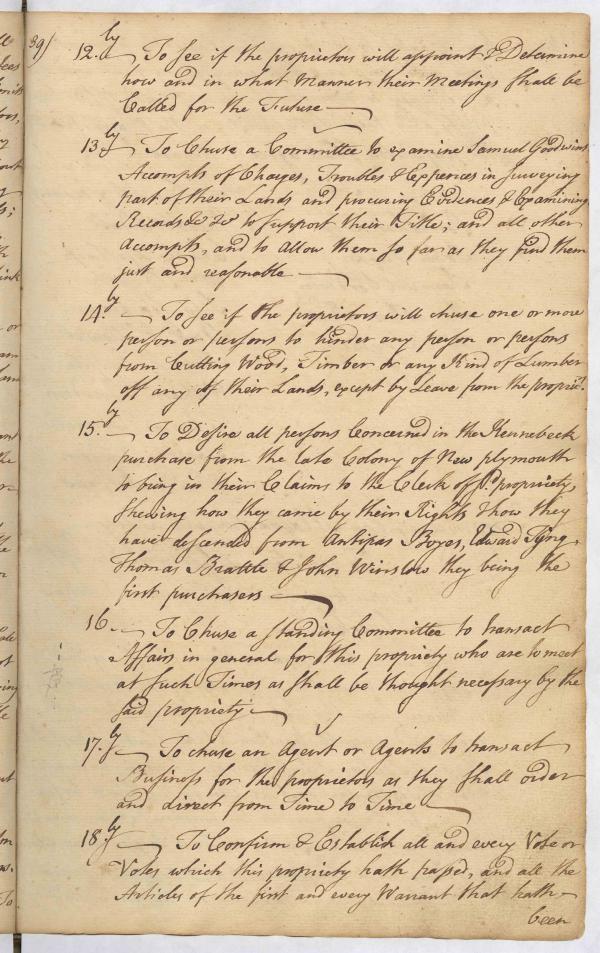 39/
12.ly To See if the proprietors will appoint & Determine
how and in what Manner their Meetings Shall be
Called for the Future
13.ly To Chuse a Committee to examine Samuel Goodwins
Accompts of Charges, Troubles & Expences in Surveying
part of their Lands and procuring Evidences & Examining
Records &c &c to Support their Title; and all other
Accompts, and to Allow them so far as they find them
just and reasonable
14.ly To See if the proprietors will chuse one or more
person or persons to hinder any person or persons
from Cutting Wood, Timber or any Kind of Lumber
off any of their Lands, except by Leave from the propriet.
15.ly To Desire all persons Concerned in the Kennebeck
purchase from the late Colony of New plymouth
to bring in their Claims to the Clerk of sd. propriety,
Shewing how they came by their Rights & how they
have descended from Antipas Boyes, Edward Tyng,
Thomas Brattle & John Winslow they being the
first purchasers
16. To Chuse a standing Committee to transact
Affairs in general for this propriety who are to meet
at such Times as shall be thought necessary by the
said propriety
17.ly To chuse an Agent or Agents to transact
Business for the proprietors as they shall order
and direct from Time to Time
18.ly To Confirm & Establish all and every Vote or
Votes which this propriety hath passed, and all the
Articles of the first and every Warrant that hath
been